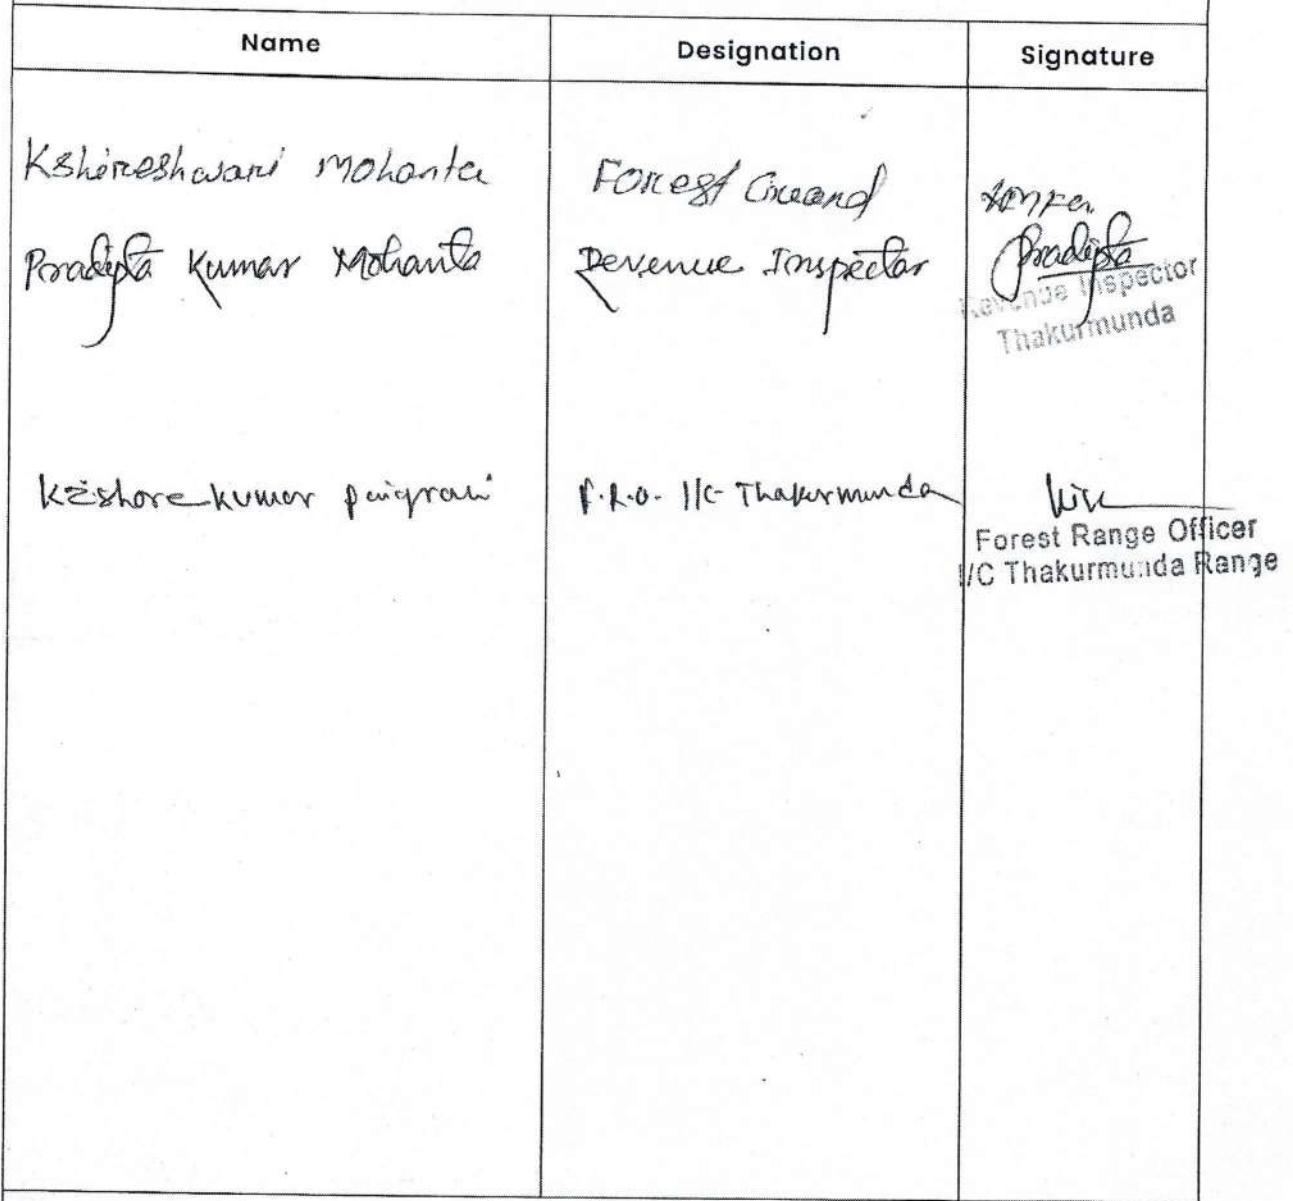 Name Designation Signature
Kshireshwari Mohanta Forest Guard
Pradipta Kumar Mohanta Revenue Inspector Pradipta
Revenue Inspector
Thakurmunda
Kishore kumar panigrahi F.R.O. I/C Thakurmunda
Forest Range Officer
I/C Thakurmunda Range